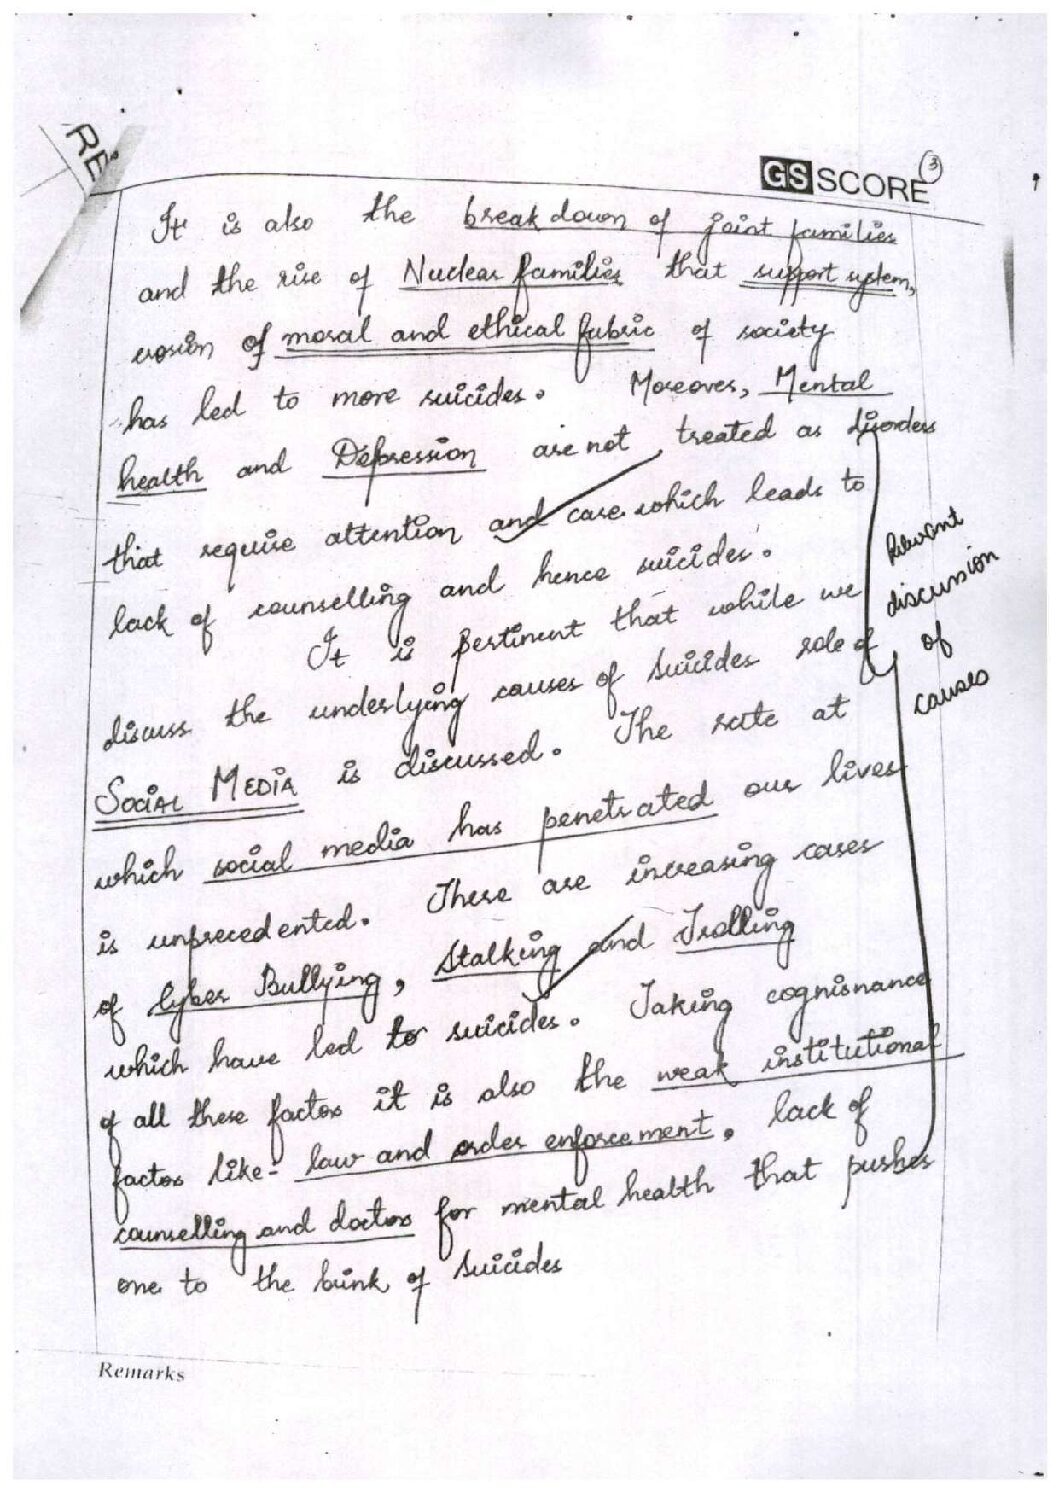 RE
GS SCORE
3
It is also the breakdown of joint families
and the rise of Nuclear families that support system,
erosion of moral and ethical fabric of society
has led to more suicides. Moreover, Mental
health and Depression are not treated as disorders
that require attention and care which leads to
lack of counselling and hence suicides.
It is pertinent that while we
discuss the underlying causes of suicides role of
SOCIAL MEDIA is discussed. The rate at
which social media has penetrated our lives
is unprecedented. There are increasing cases
of Cyber Bullying, Stalking and Trolling
which have led to suicides. Taking cognisnance
of all these factors it is also the weak institutional
factors like- law and order enforcement, lack of
counselling and doctors for mental health that pushes
one to the brink of suicides
Relevant
discussion
of
causes
Remarks